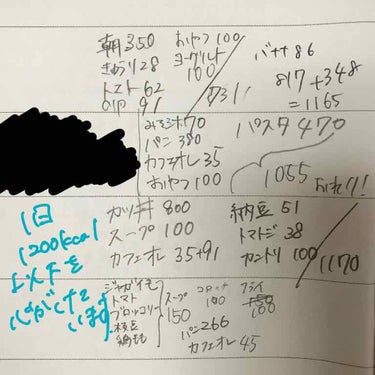 朝 350
きゅうり 28
トマト 62
91
おやつ 100
ヨーグルト
100
731
バナナ 86
817+348
=1165
みそ汁 70
パン 380
カフェオレ 35
おやつ 100
パスタ 470
1055
カツ丼 800
スープ 100
カフェオレ 35+91
納豆 51
トマトジ 38
カントリ 100
1170
ジャガイモ
トマト
ブロッコリー
枝豆
納豆
スープ
150
コロッケ
100
フライ
100
パン 266
カフェオレ 45
1日
1200kcal
以下を
心がけて
います